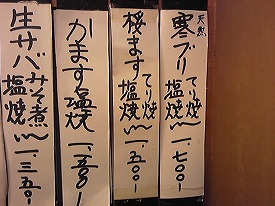 天然
寒ブリ てり焼 塩焼 〜 一、七〇〇-
桜ます てり焼 塩焼 〜 一、五〇〇-
かます塩焼 一、五〇〇-
生サバみそ煮 塩焼 〜 一、三五〇-